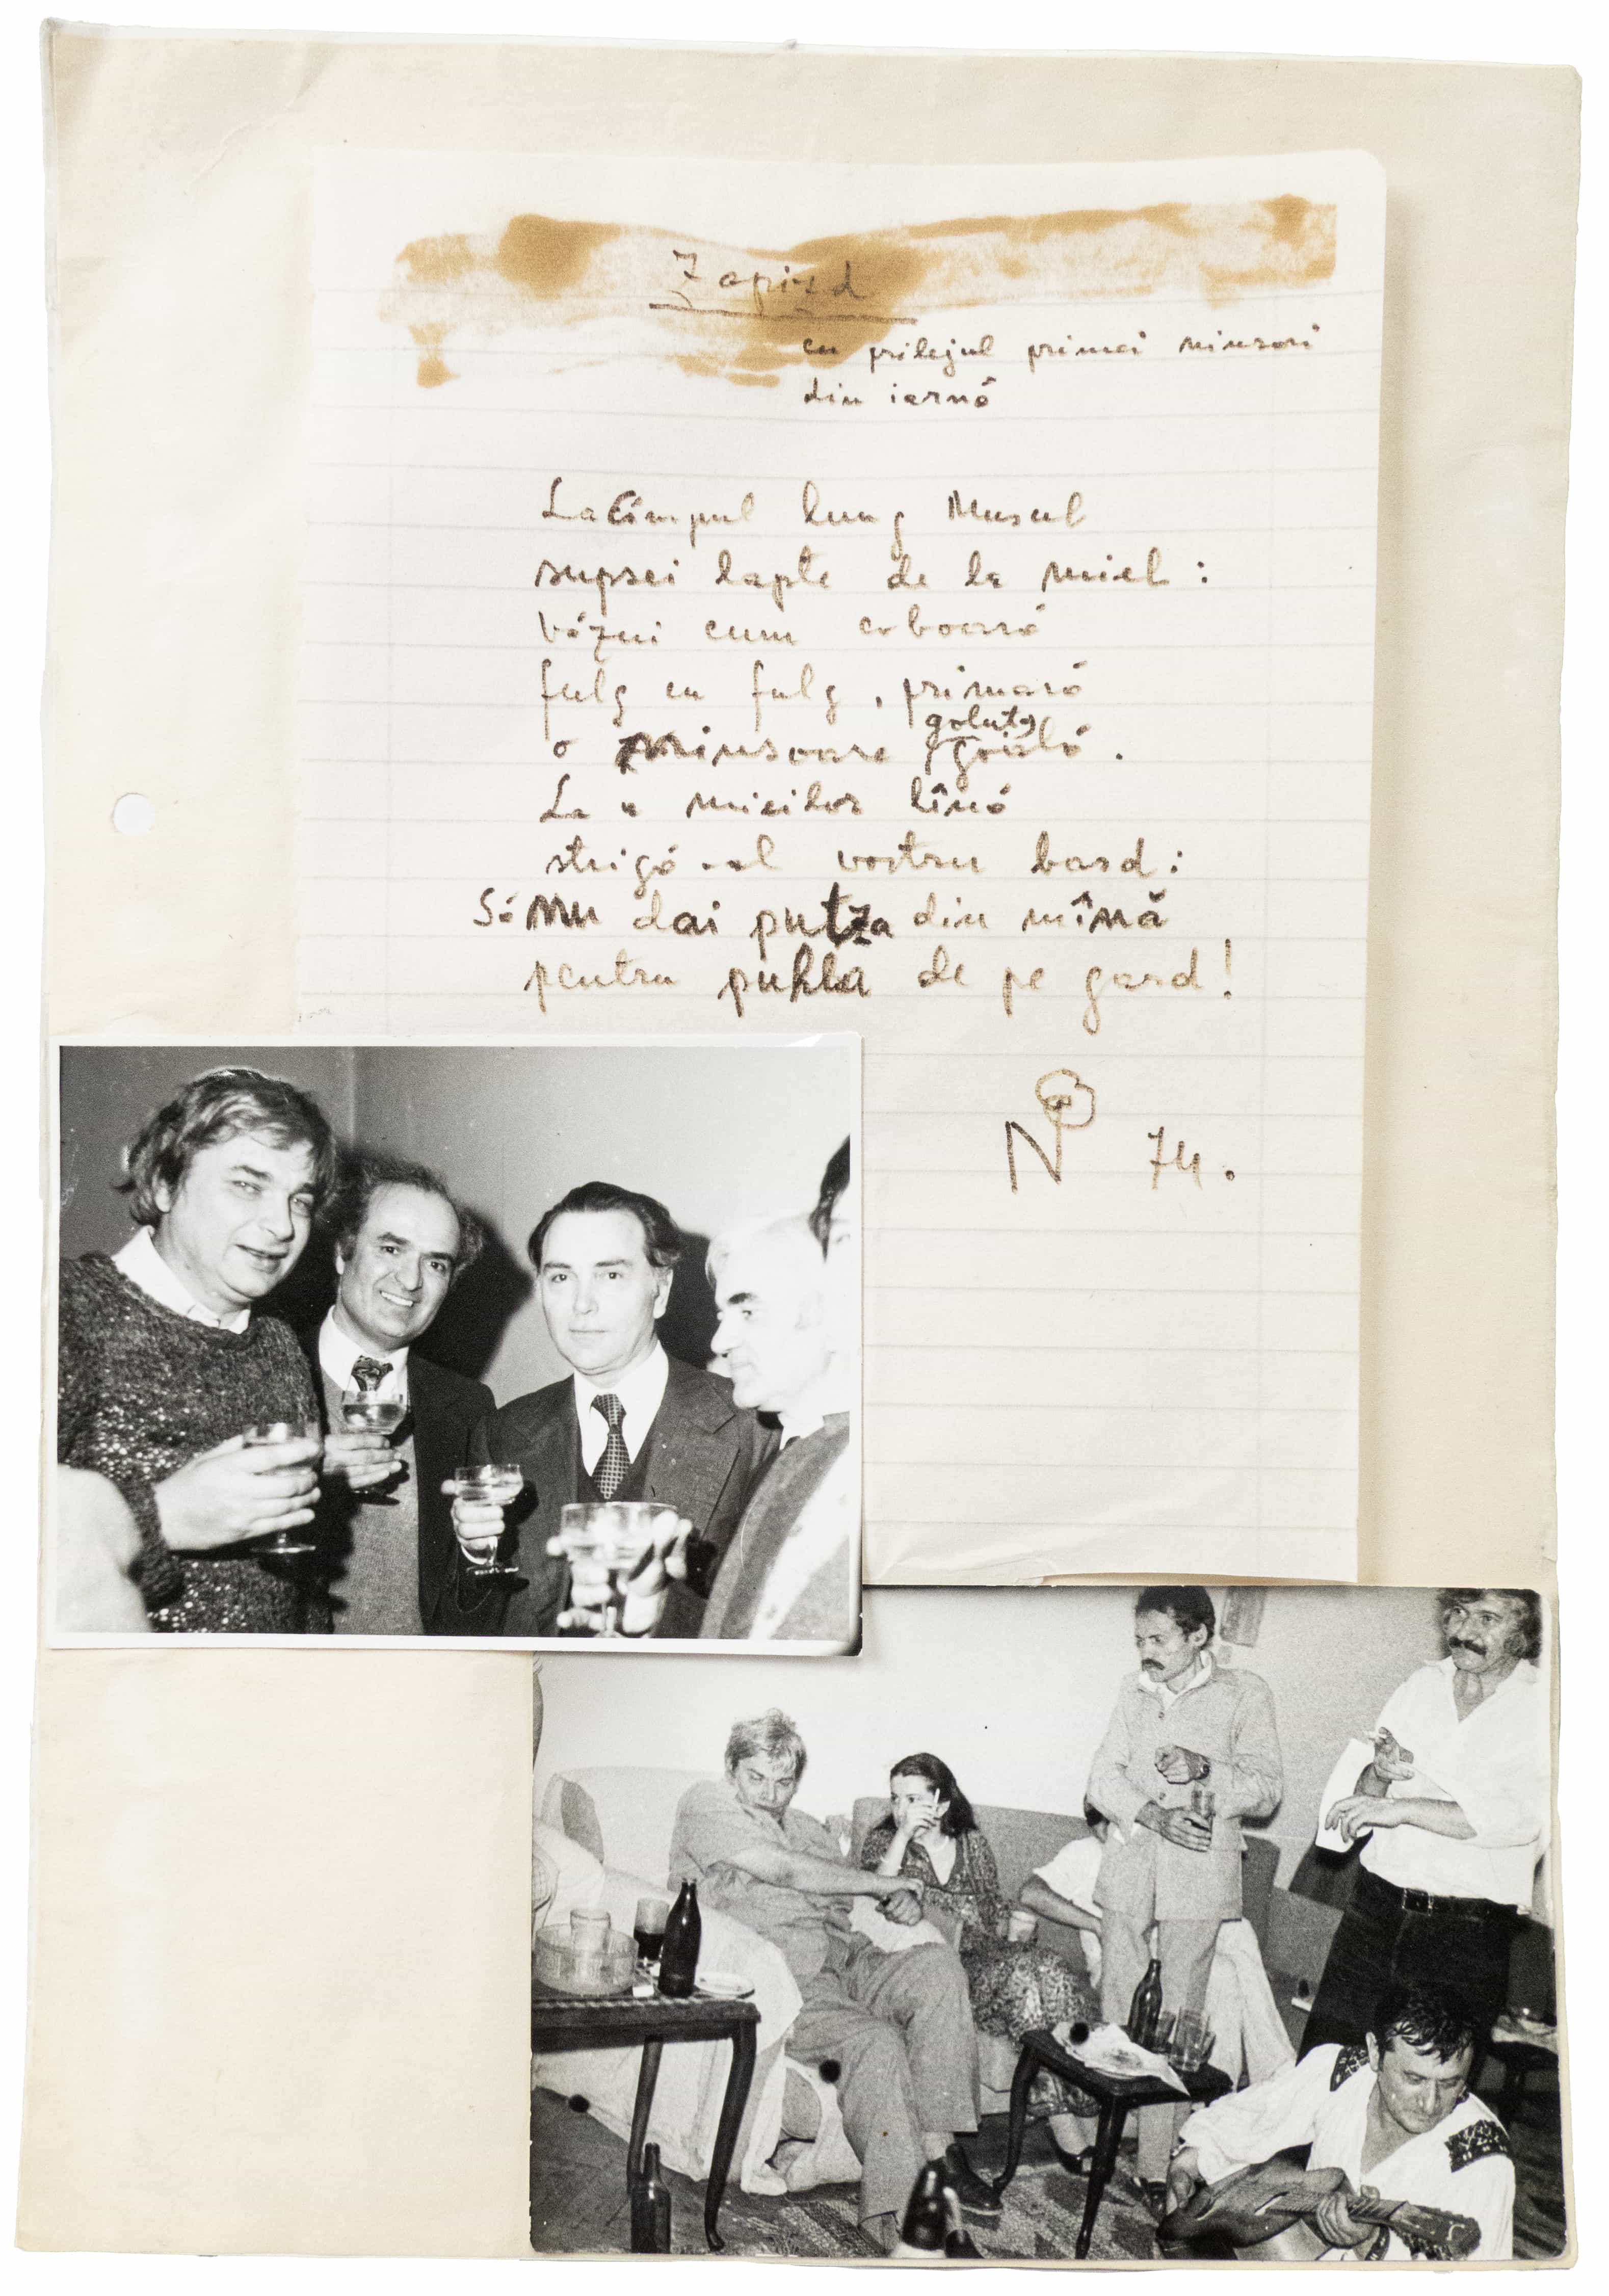 Zapizd
cu prilejul primei ninsori
din iarnă
La Cîmpul lung Muscel
supsei lapte de la miel:
văzui cum coboară
fulg cu fulg, primară
goluță
o ninsoare, goală.
La a micilor lînă
strigă-al vostru bard:
Să nu dai putza din mînă
pentru puhla de pe gard!
N 74.